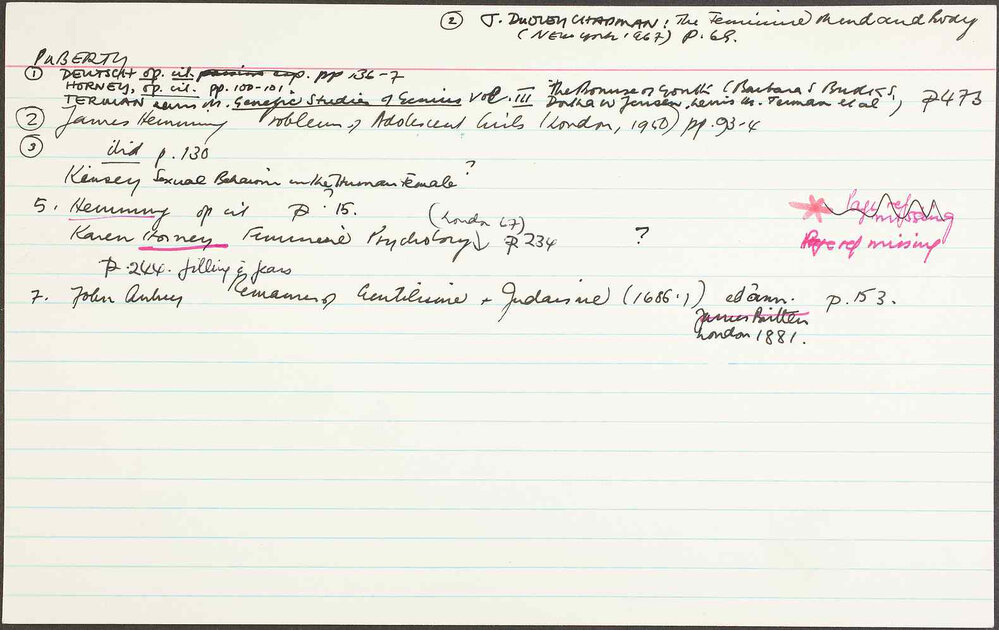 ② J. DUDLEY CHAPMAN: The Feminine Mind and body
(NEW YORK 1967) P. 69.
PUBERTY
① DEUTSCH op. cit. pp 136-7
HORNEY, op. cit. pp. 100-101.
TERMAN Lewis M. Genetic Studies of Genius Vol. III The Promise of Youth (Barbara S Burks, Dortha W Jensen, Lewis M. Terman et al), p 473
② James Hemming Problems of Adolescent Girls (London, 1960) pp. 93-4
③ ibid p. 130
Kinsey Sexual Behaviour in the Human Female ?
5. Hemming op cit p. 15. ?
Karen Horney Feminine Psychology (London 67) p 234 ?
Page ref missing
Page ref missing
p. 244. filling & fears
7. John Aubrey Remaines of Gentilisme + Judaisme (1686-7) ed. ann. p. 153.
James Britten
London 1881.